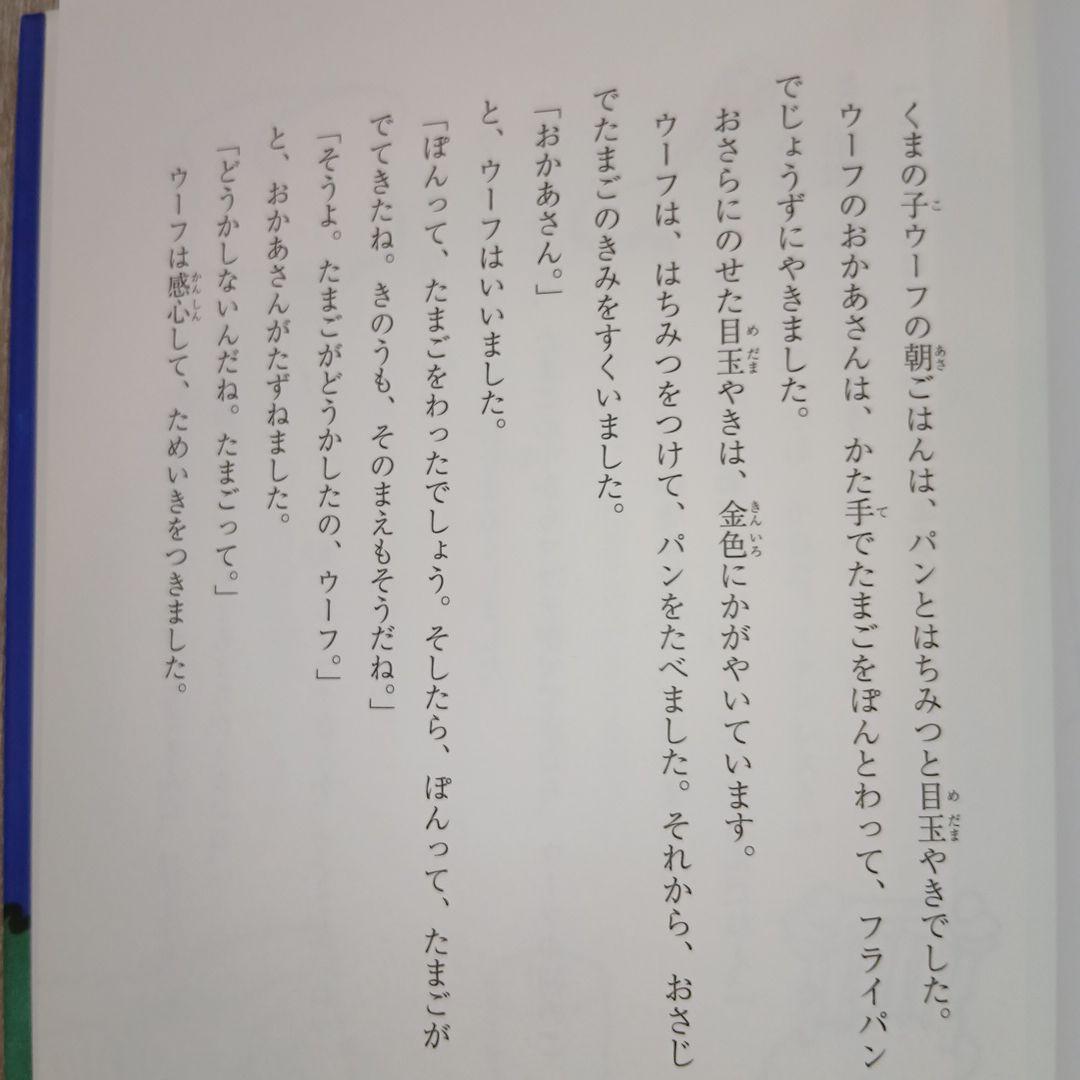 くまの子ウーフの朝ごはんは、パンとはちみつと目玉やきでした。
ウーフのおかあさんは、かた手でたまごをぽんとわって、フライパン
でじょうずにやきました。
おさらにのせた目玉やきは、金色にかがやいています。
ウーフは、はちみつをつけて、パンをたべました。それから、おさじ
でたまごのきみをすくいました。
「おかあさん。」
と、ウーフはいいました。
「ぽんって、たまごをわったでしょう。そしたら、ぽんって、たまごが
でてきたね。きのうも、そのまえもそうだね。」
「そうよ。たまごがどうかしたの、ウーフ。」
と、おかあさんがたずねました。
「どうかしないんだね。たまごって。」
ウーフは感心して、ためいきをつきました。